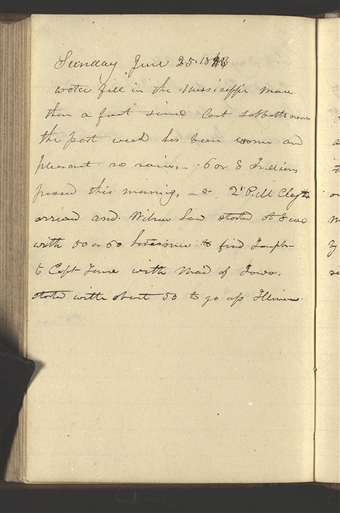 Sunday June 25 1843
water fell in the Mississippi more
than a foot since last Sabbath
the past week has been warm and
pleasant no rain, - 6 or 8 Indians
passed this morning, - 2 P.M. Clayton
arrived and Wilson Law started at 5
with 50 or 60 horsemen to find Joseph
& Capt with Maid of Iowa.
started with about 50 to go up Illinois.